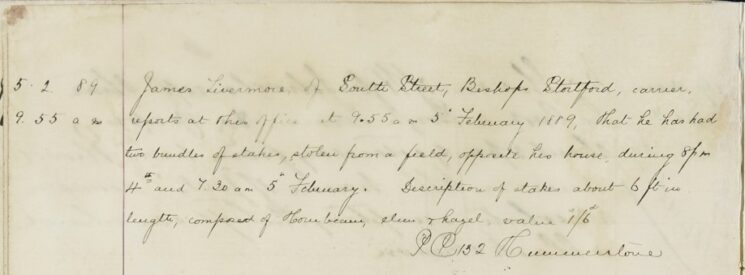 5. 2. 89 James Livermore, of South Street, Bishops Stortford, carrier,
9. 55 a m reports at this office at 9.55 a m 5th February 1889, that he has had
two bundles of stakes, stolen from a field, opposite his house, during 8 p m
4th and 7.30 am 5th February. Description of stakes about 6 ft in
length, composed of Hornbeam, elm & hazel value 1/6d
PC 132 Hummerstone